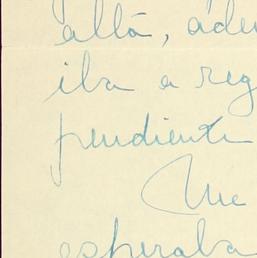 allá, ade
iba a reg
pendiente
Me
esperaba